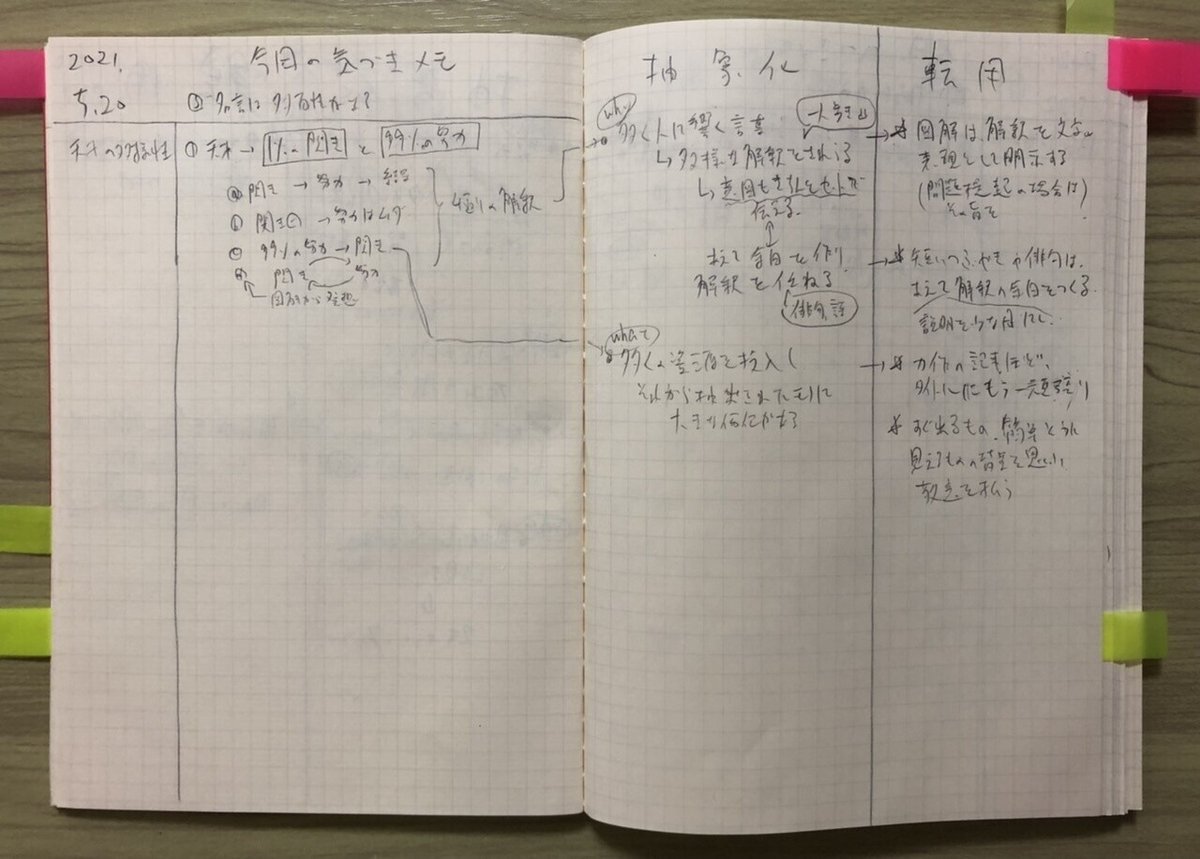 2021.
5.20
今回の気づきメモ
② 名言は多面性がある
天才の多様性
① 天才 → 1%の閃き と 99%の努力
ⓐ 閃き → 努力 → 結果
ⓑ 閃き → 努力はムダ
ⓒ 99%の努力 → 閃き
ⓓ 閃き 努力
図解から発想
4通りの解釈
抽象化
why
多く人に響く言葉
↳ 多様な解釈をされる
↳ 意図もきちんとセットで
伝える
↕
あえて余白を作り
解釈を任ねる
俳句、詩
what
多くの を投入し
それから抽出されたモノに
大きな価値がある
転用
→ * 図解は、解釈を文字の
表現として明示する
(問題提起の場合は)
その旨を
→ * 短いつぶやきや俳句は、
あえて解釈の余白をつくる
説明をうな用にし
→ * 力作の記事ほど、
タイトルにもう一頑張り
* すぐ出るもの、簡単そうに
見えるものの背景を思い、
敬意を払う